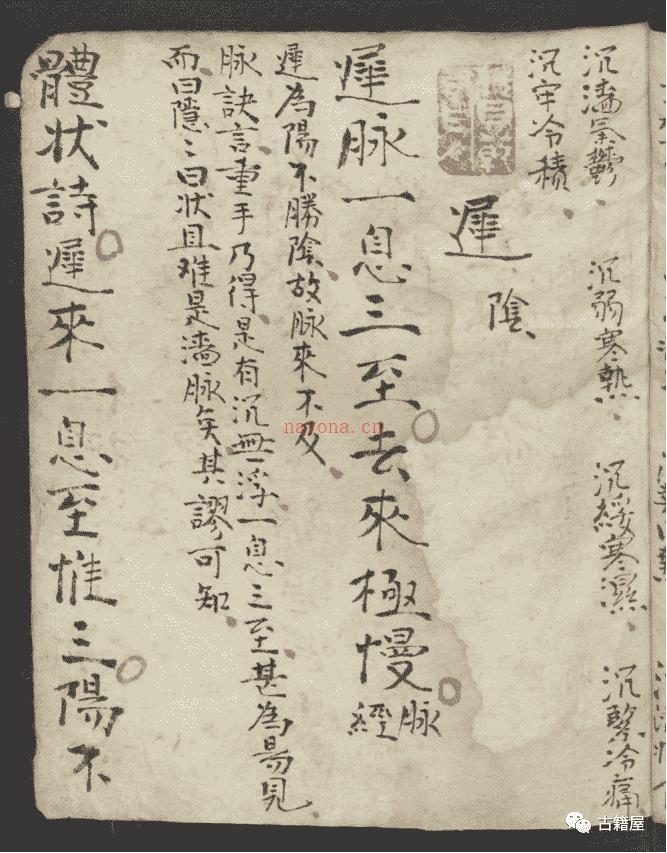 沉濇氣鬱、沉弱寒熱、沉緩寒濕、沉緊冷痛、
沉牢冷積、
遲 陰
遲脉一息三至去來極慢 脉經
遲為陽不勝陰故脉來不及、
脉訣言重手乃得是有沉無浮一息三至甚為易見
而曰隱〻曰状且难是濇脉矣其謬可知、
體状詩遲來一息至惟三陽不
nayona.cn
古籍屋